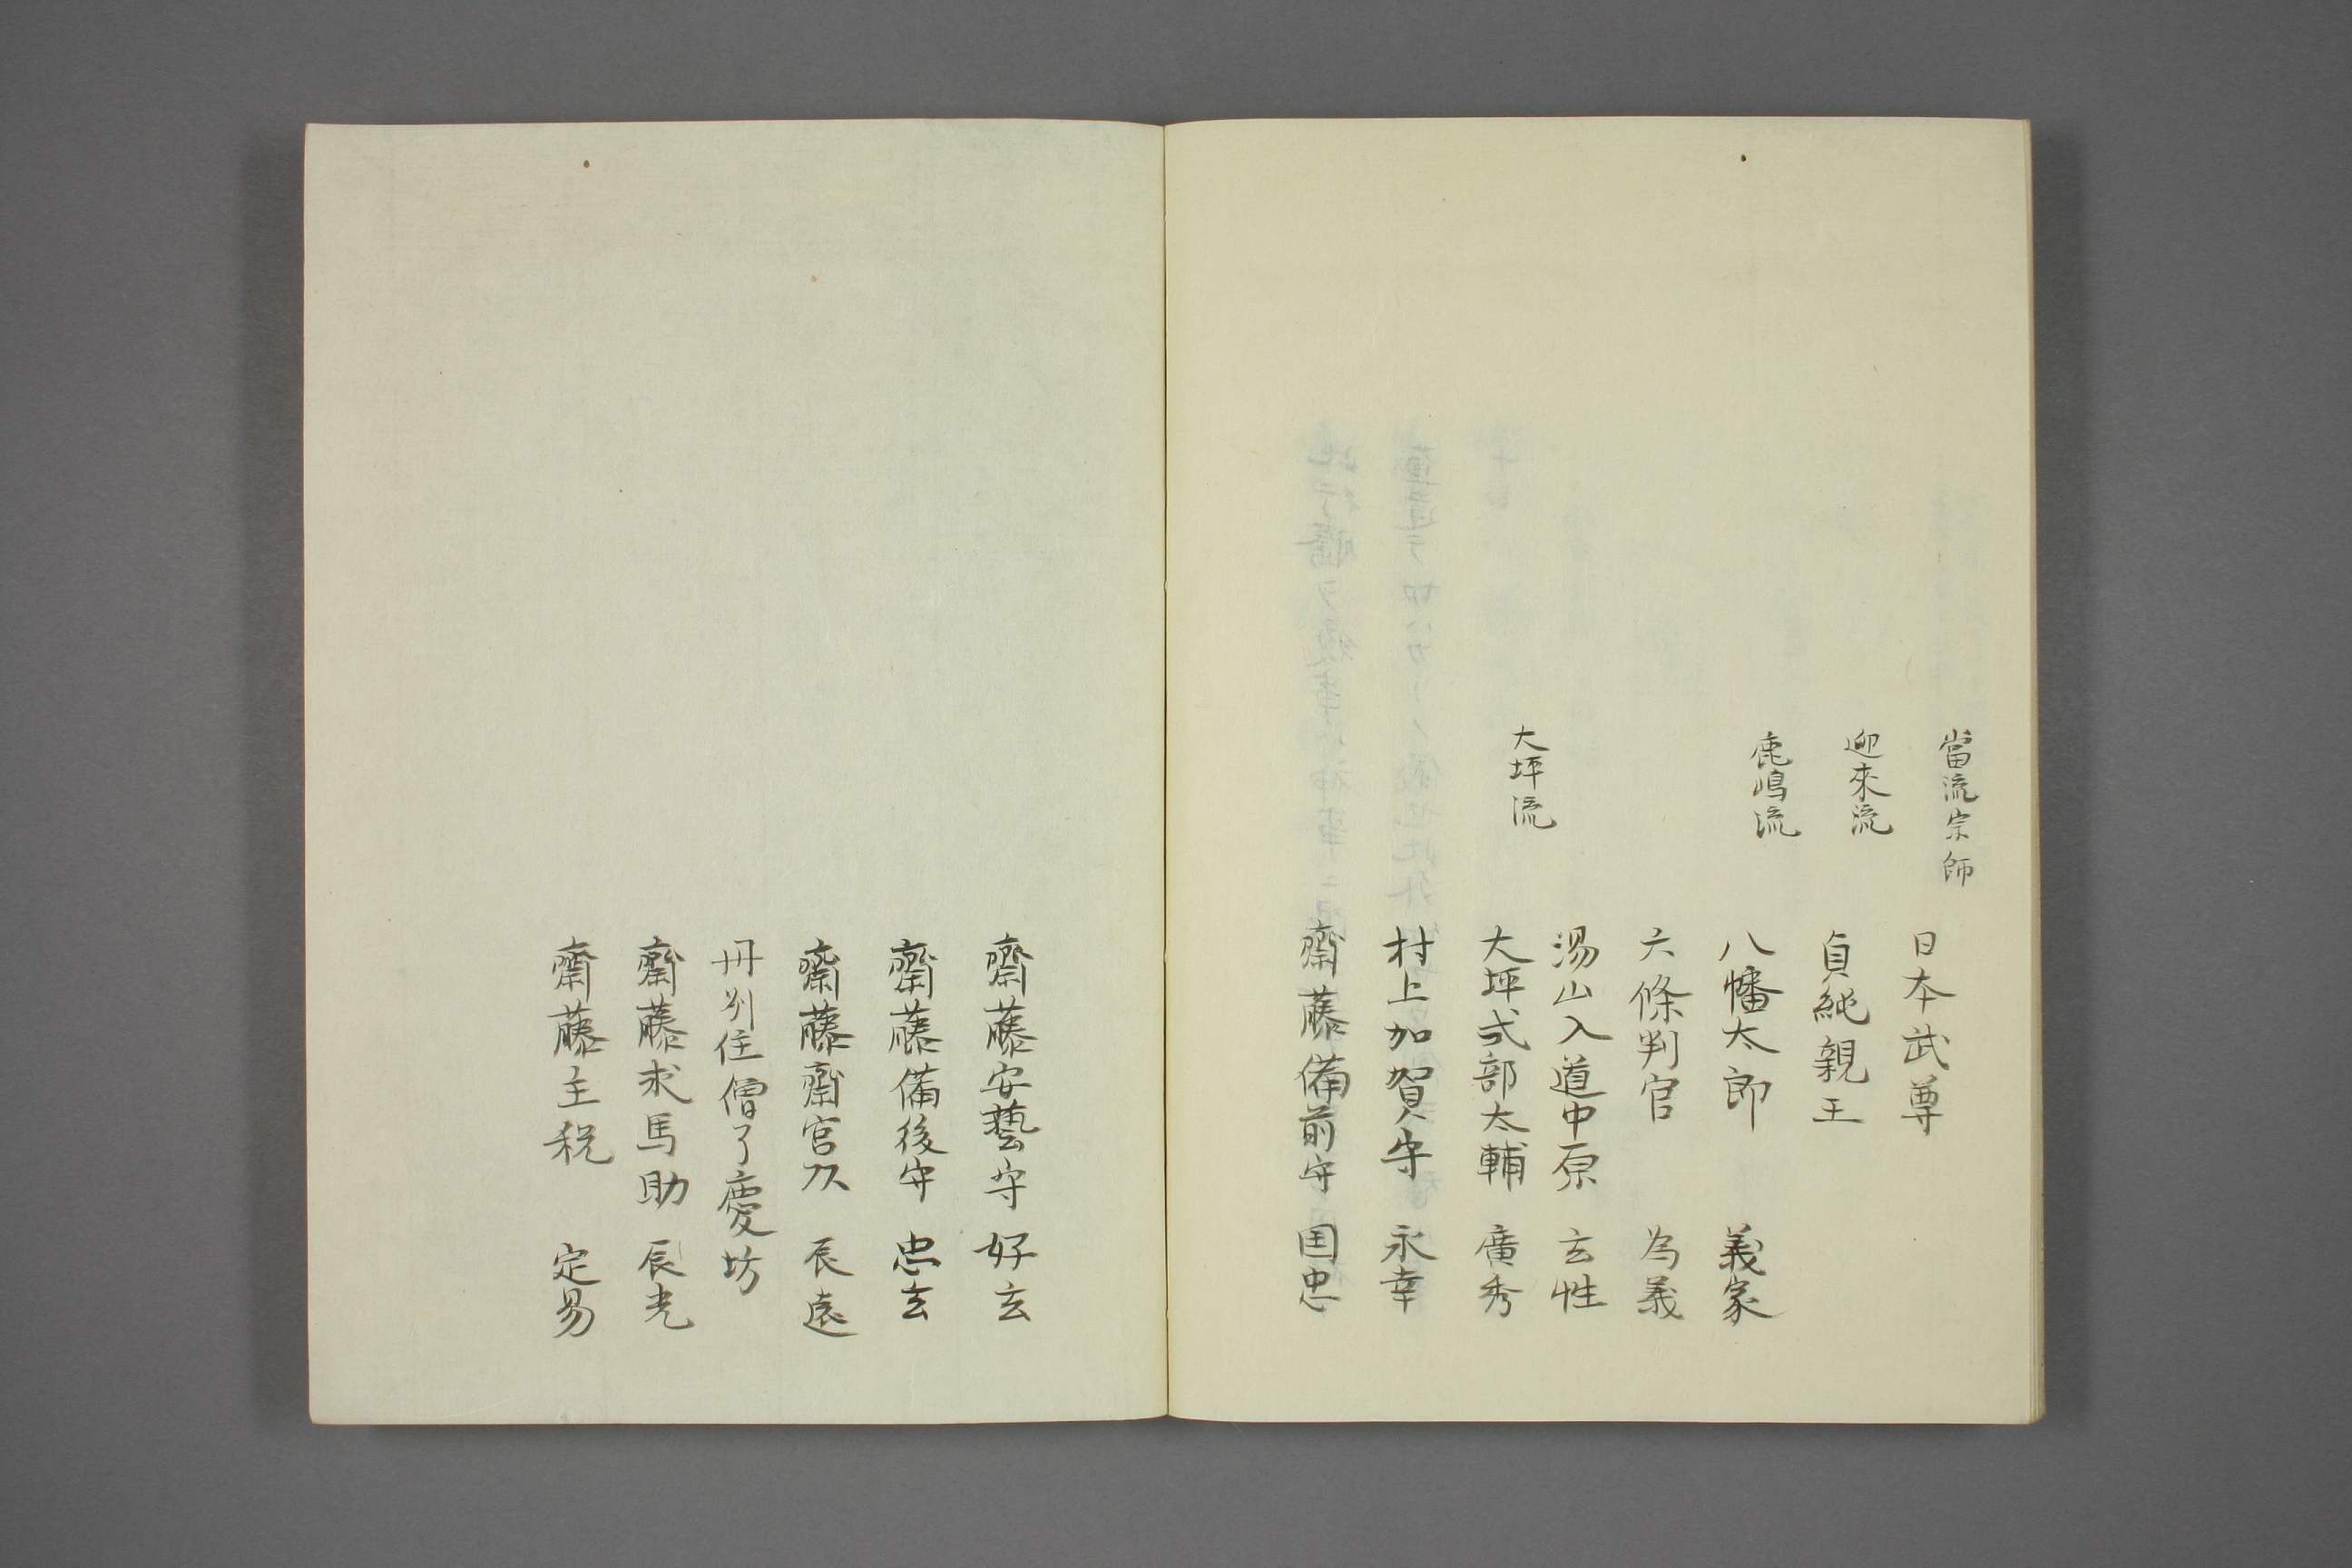 當流宗師
日本武尊
迎來流
貞純親王
鹿嶋流
八幡太郎 義家
六條判官 為義
湯山入道中原 玄性
大坪流
大坪式部太輔 廣秀
村上加賀守 永幸
齋藤備前守 国忠
齋藤安藝守 好玄
齋藤備後守 忠玄
齋藤齋宮頭 辰遠
丹州住僧了慶坊
齋藤求馬助 辰光
齋藤主税 定易